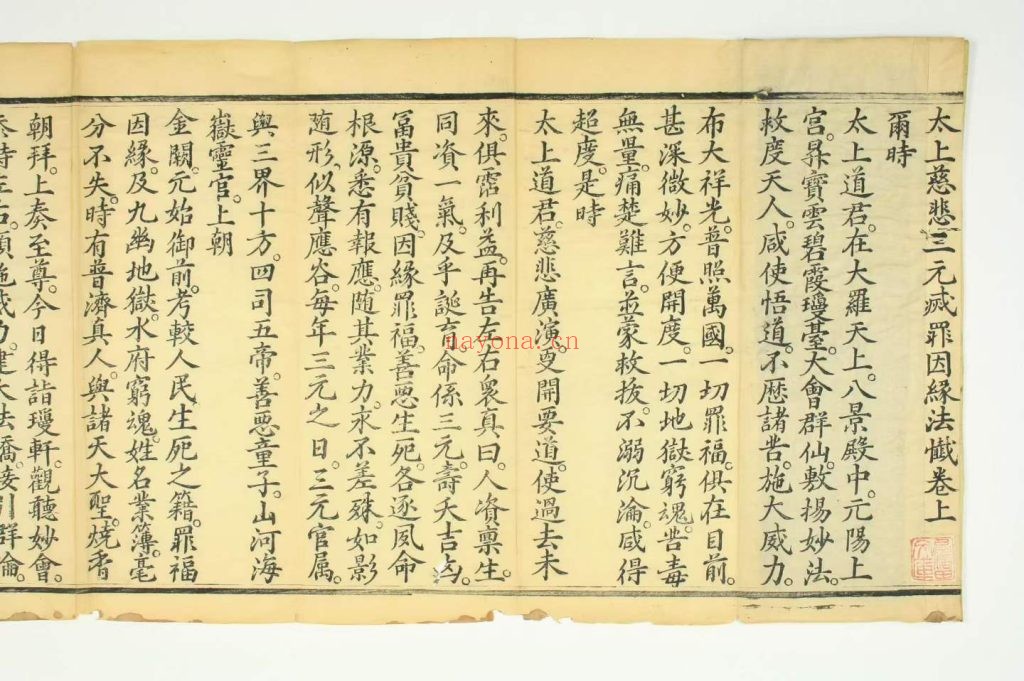 太上慈悲三元滅罪因緣法懺卷上
爾時
太上道君。在大羅天上。八景殿中。元陽上
宮。昇寶雲碧霞瓊臺。大會群仙。敷揚妙法。
救度天人。咸使悟道。不歷諸苦。施大威力。
布大祥光。普照萬國。一切罪福。俱在目前。
甚深微妙。方便開度。一切地獄窮魂。苦毒
無量。痛楚難言。並蒙救拔。不溺沉淪。咸得
超度。是時
太上道君。慈悲廣演。更開要道。使過去未
來。俱霑利益。再告左右衆真曰。人資稟生。
同資一氣。及乎誕育。命係三元。壽夭吉凶。
冨貴貧賤。因緣罪福。善惡生死。各逐夙命
根源。悉有報應。随其業力。永不差殊。如影
随形。似聲應谷。每年三元之日。三元官属。
與三界十方。四司五帝。善惡童子。山河海
嶽靈官。上朝
金闕。元始御前。考較人民生死之籍。罪福
因緣。及九幽地獄。水府窮魂。姓名業簿。毫
分不失。時有普濟真人。與諸天大聖。燒香
朝拜。上奏至尊。今日得詣瓊軒。觀聽妙會。
法橋。接引群淪。
nayona.cn